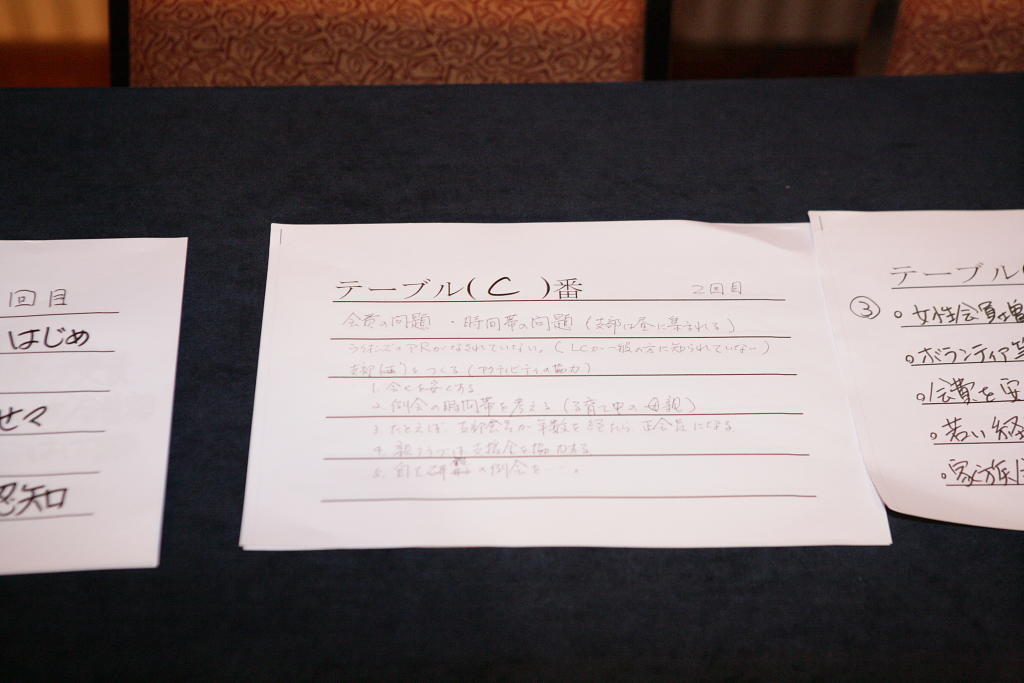 回目
はじめ
せ々
認知
テーブル(C)番 2回目
会費の問題 ・時間帯の問題(支部は昼に集まれる)
ライオンズのPRがなされていない。(LCが一般の方に知られていない)
支部 をつくる(アクティビティの協力)
1. 会費を安くする
2. 例会の時間帯を考える(子育て中の母親)
3. たとえば 支部会員が年数を経たら、正会員になる
4. 親クラブは支援金を協力する
5. の例会を…。
テーブル(
③ 。女性会員増
。ボランティア
。会費を安
。若い経
。家族